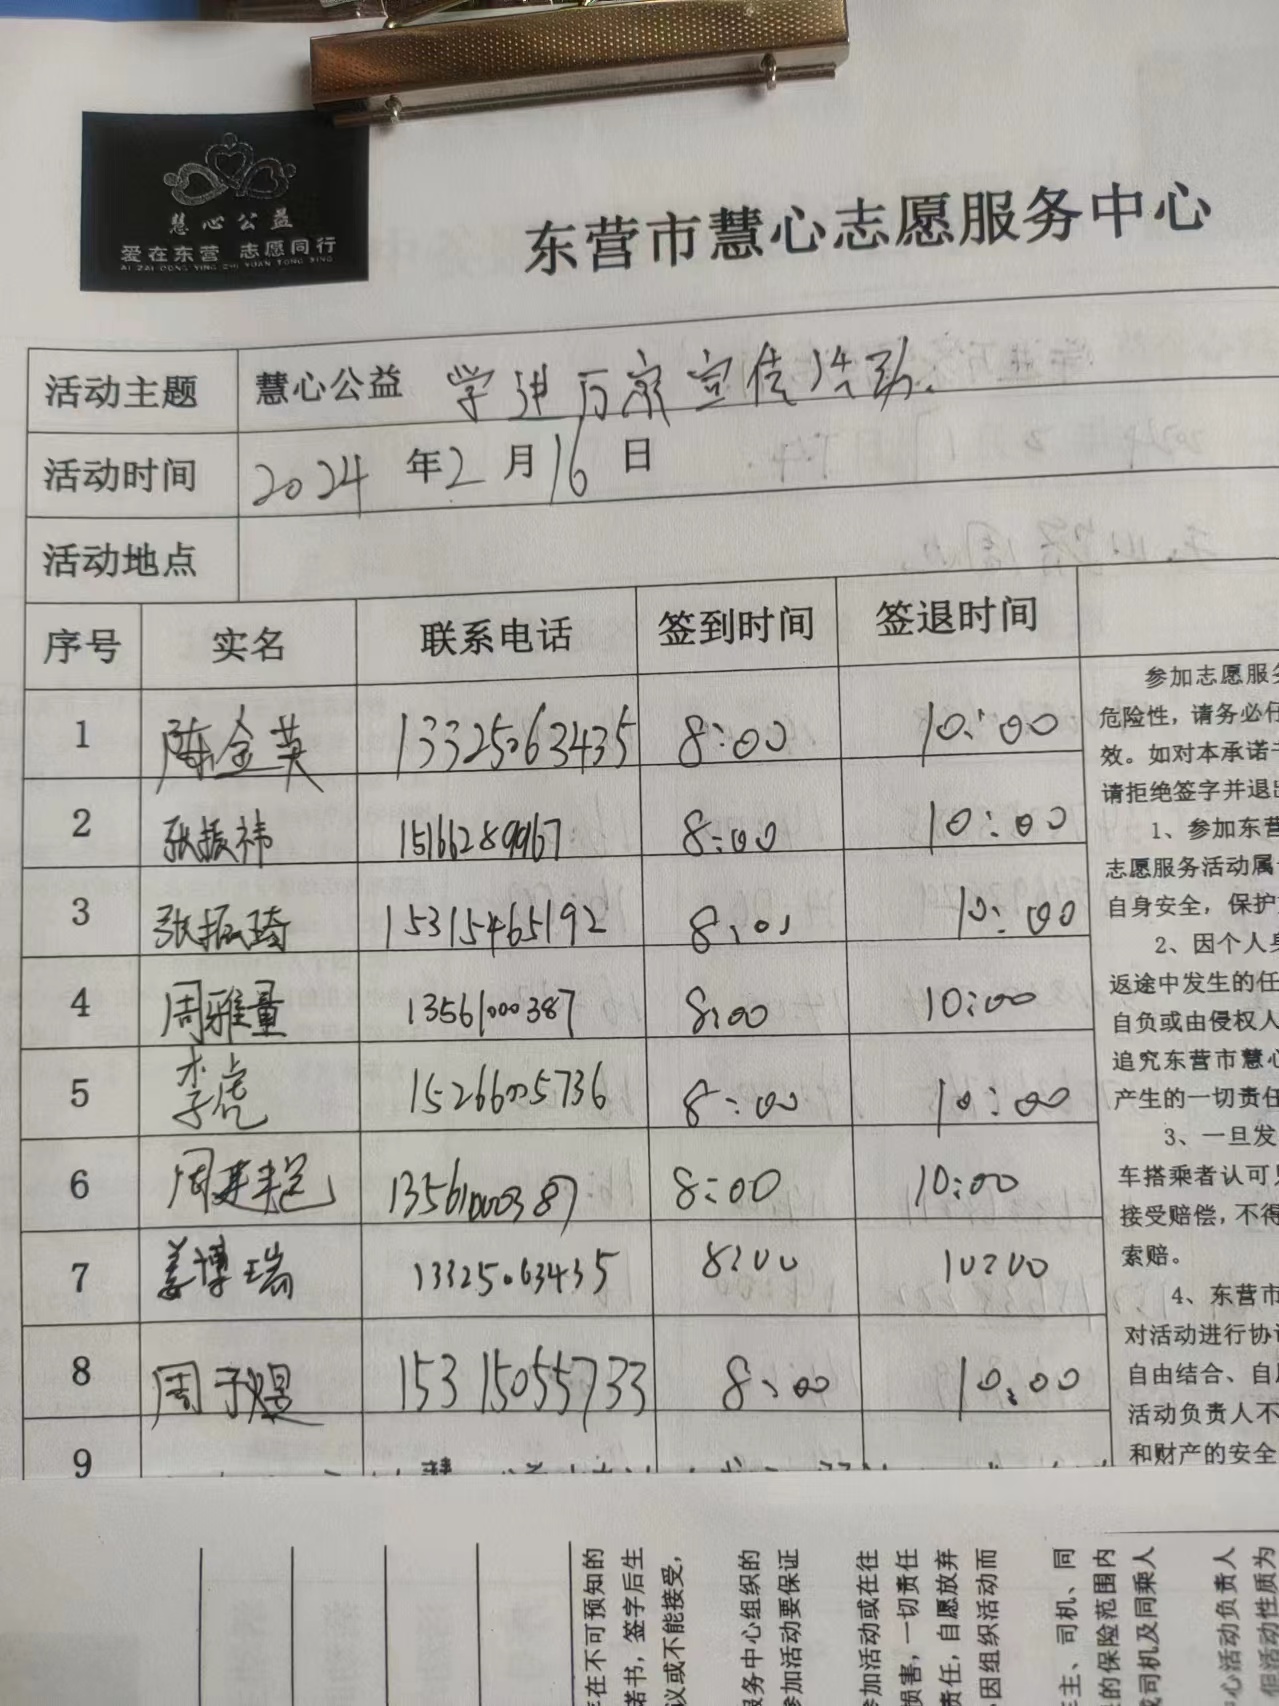 慧心公益
爱在东营 志愿同行
AI ZAI DONG YING ZHI YUAN TONG XING
东营市慧心志愿服务中心
活动主题 慧心公益 学进万家宣传活动.
活动时间 2024 年2月16日
活动地点
序号 实名 联系电话 签到时间 签退时间
1 陈金英 13325063435 8:00 10:00
2 张振祎 15166289967 8:00 10:00
3 张振琦 15315465192 8:01 10:00
4 周雅量 13561000387 8:00 10:00
5 李虎 15266005736 8:00 10:00
6 周 13561000387 8:00 10:00
7 姜博瑞 13325063435 8:00 10:00
8 周子煜 15315055733 8:00 10:00
9
参加志愿服务
危险性，请务必仔
效。如对本承诺书
请拒绝签字并退出
1、参加东营
志愿服务活动属
自身安全，保护
2、因个人身
返途中发生的任
自负或由侵权人
追究东营市慧心
产生的一切责任
3、一旦发
车搭乘者认可
接受赔偿，不得
索赔。
4、东营市
对活动进行协
自由结合、自
活动负责人不
和财产的安全
存在不可预知的
诺书，签字后生
议或不能接受，
服务中心组织的
参加活动要保证
参加活动或在往
损害，一切责任
责任，自愿放弃
因组织活动而
车主、司机、同
的保险范围内
司机及同乘人
中心活动负责人
但活动性质为